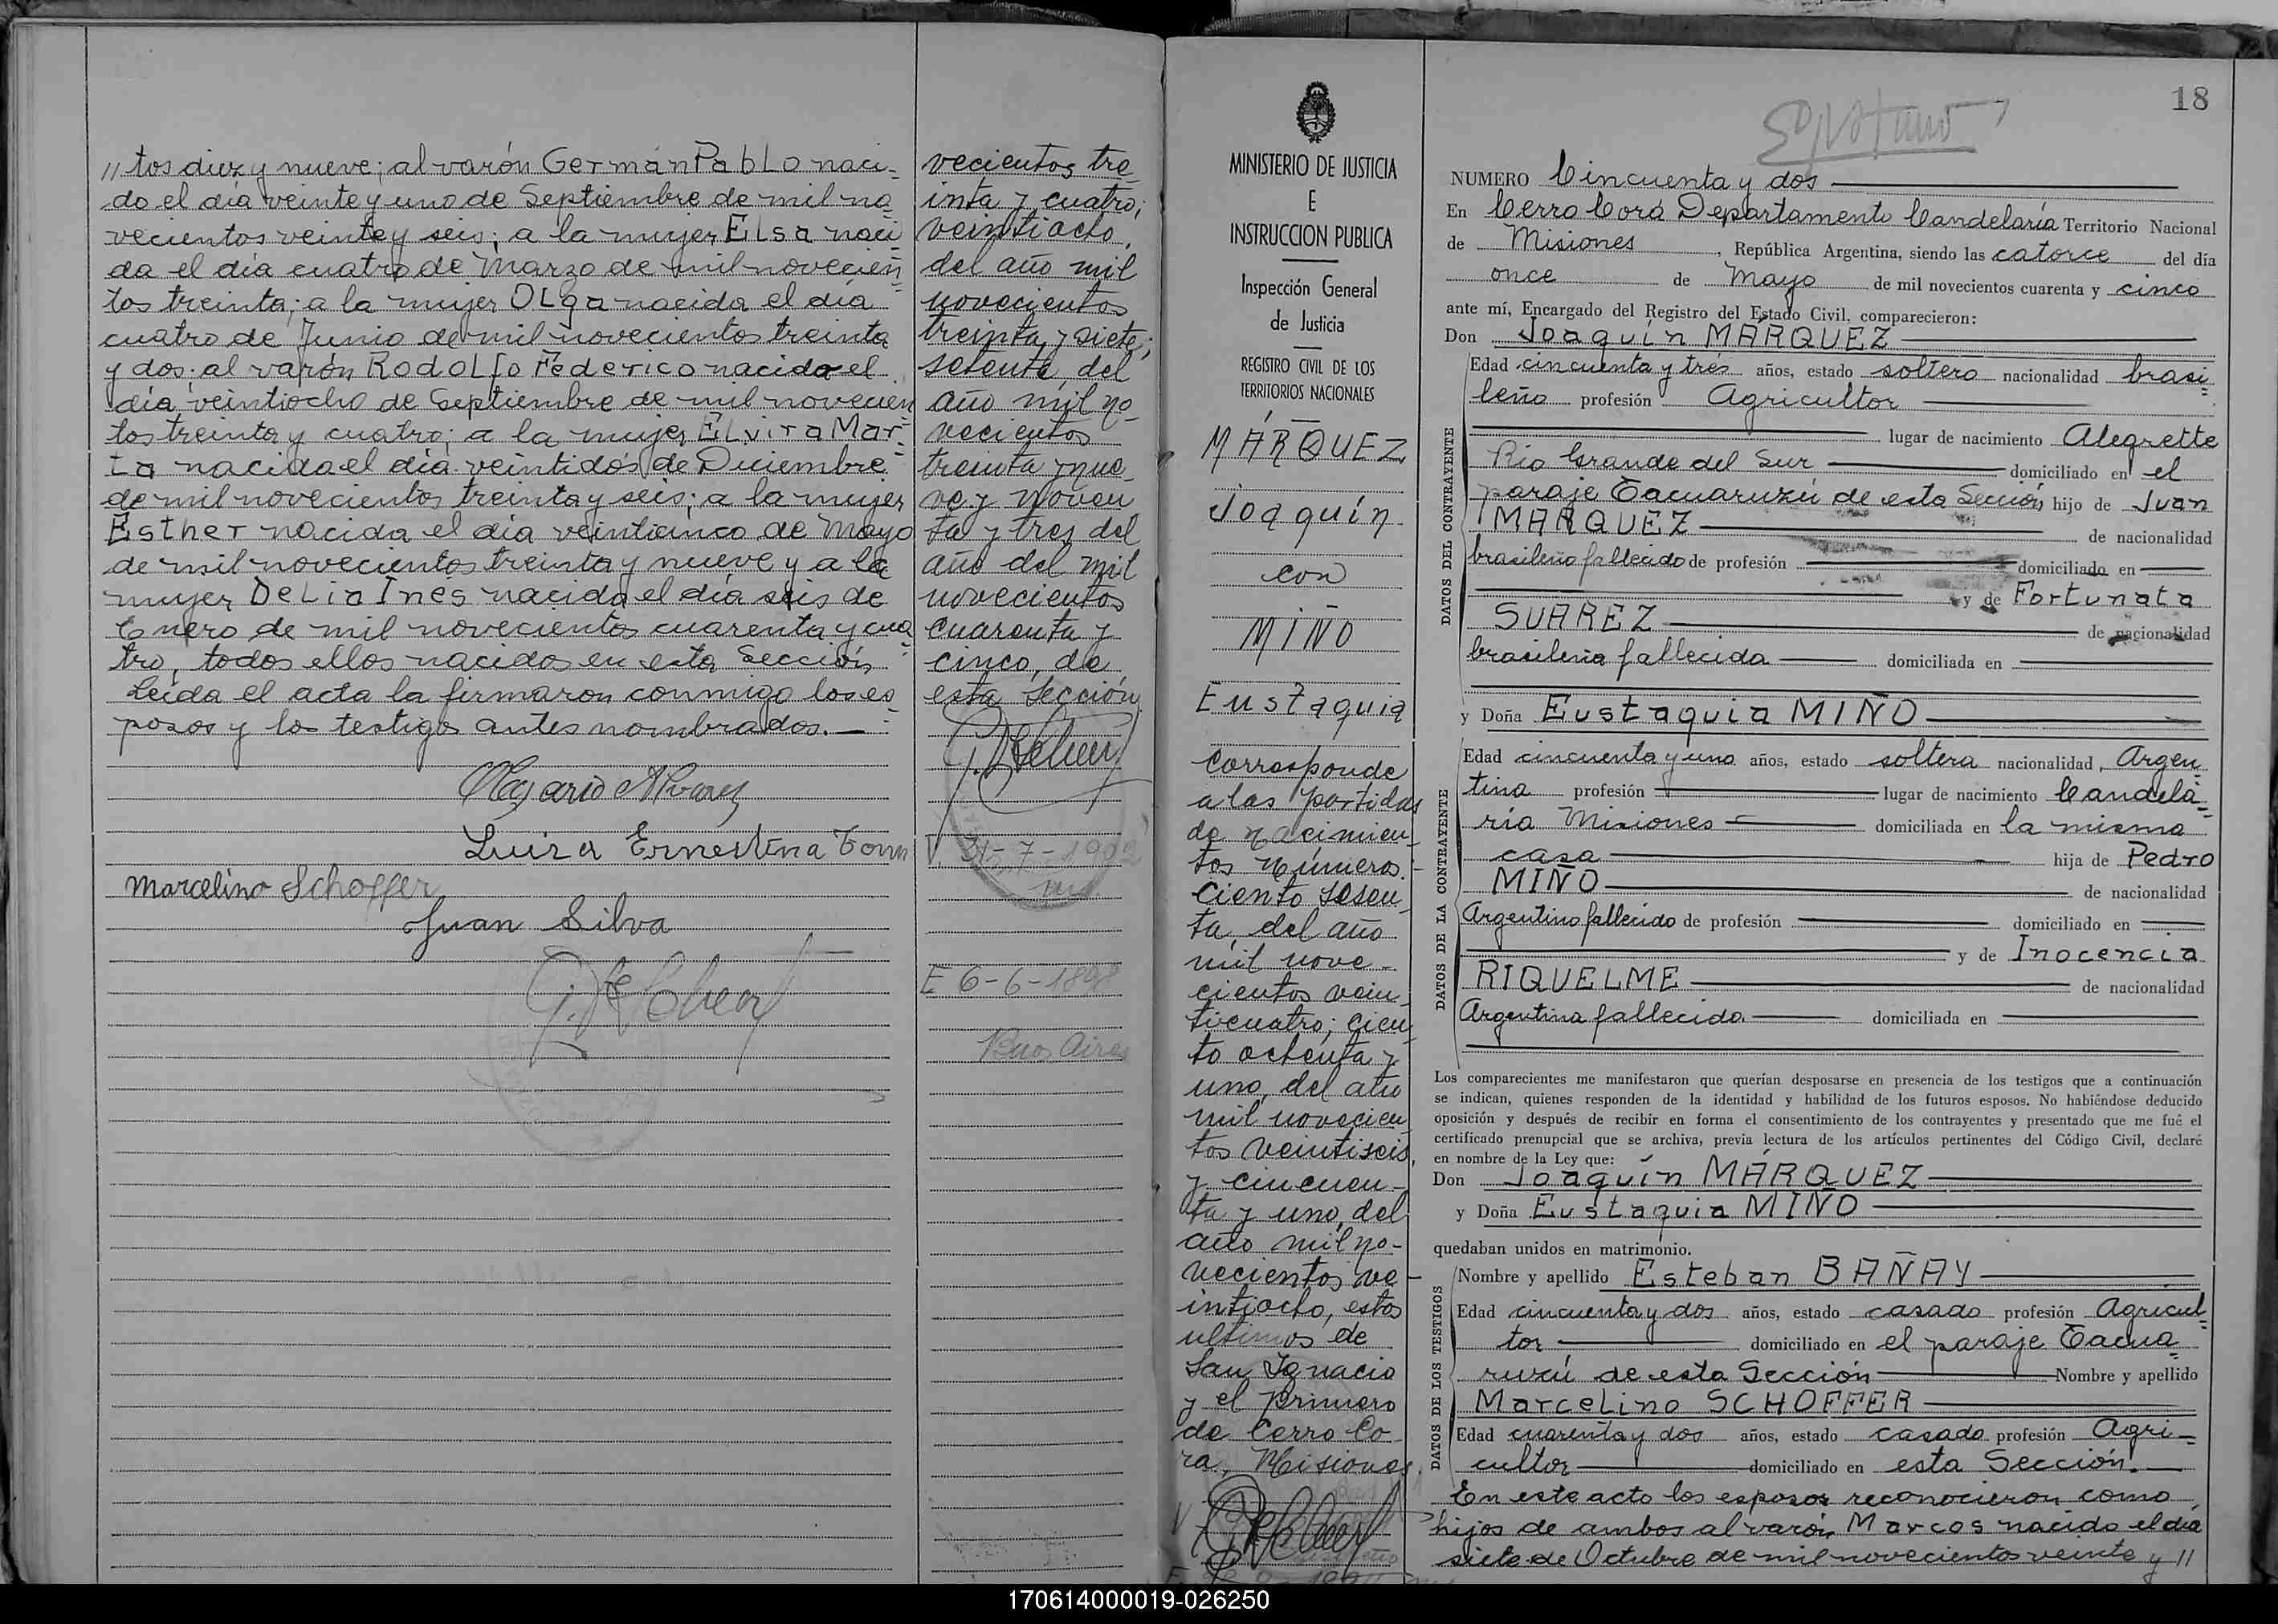 // tos diez y nueve; al varón Germán Pablo naci-
do el día veinte y uno de Septiembre de mil no
vecientos veinte y seis; a la mujer Elsa naci
da el día cuatro de Marzo de mil novecien
tos treinta; a la mujer Olga nacida el día
cuatro de Junio de mil novecientos treinta
y dos; al varón Rodolfo Federico nacido el
día veintiocho de Septiembre de mil novecien
tos treinta y cuatro; a la mujer Elvira Mar-
ta nacida el día veintidós de Diciembre
de mil novecientos treinta y seis; a la mujer
Esther nacida el día veinticinco de Mayo
de mil novecientos treinta y nueve y a la
mujer Delia Inés nacida el día seis de
Enero de mil novecientos cuarenta y cua
tro, todos ellos nacidos en esta Sección
Leída el acta la firmaron conmigo los es
posos y los testigos antes nombrados.—
Luisa Ernestina
Marcelino Schoffer
Juan Silva
vecientos tre
inta y cuatro;
veintiocho,
del año mil
novecientos
treinta y siete;
setenta, del
año mil no-
vecientos
treinta y nue
ve y noven
ta y tres del
año del mil
novecientos
cuarenta y
cinco, de
esta Sección
E 6-6-1898
Buenos Aires
MINISTERIO DE JUSTICIA
E
INSTRUCCION PUBLICA
Inspección General
de Justicia
REGISTRO CIVIL DE LOS
TERRITORIOS NACIONALES
MÁRQUEZ
Joaquín
con
MIÑO
Eustaquia
Corresponde
a las partidas
de nacimien-
tos números
ciento sesen
ta, del año
mil nove-
cientos vein-
ticuatro; cien
to ochenta y
uno, del año
mil novecien
tos veintiseis,
y cincuen-
ta y uno, del
año mil no-
vecientos ve-
intiocho, estos
ultimos de
San Ignacio
y el primero
de Cerro Co
rá, Misiones
18
NUMERO Cincuenta y dos
En Cerro Corá Departamento Candelaria Territorio Nacional
de Misiones, República Argentina, siendo las catorce del día
once de Mayo de mil novecientos cuarenta y cinco
ante mí, Encargado del Registro del Estado Civil, comparecieron:
Don Joaquín MÁRQUEZ
DATOS DEL CONTRAYENTE
Edad cincuenta y tres años, estado soltero nacionalidad brasi
leño profesión Agricultor
lugar de nacimiento Alegrette
Río Grande del Sur domiciliado en el
paraje Tacuaruzú de esta Sección, hijo de Juan
MÁRQUEZ de nacionalidad
brasileño fallecido de profesión domiciliado en
y de Fortunata
SUAREZ de nacionalidad
brasileña fallecida domiciliada en
y Doña Eustaquia MIÑO
DATOS DE LA CONTRAYENTE
Edad cincuenta y uno años, estado soltera nacionalidad, Argen
tina profesión lugar de nacimiento Candela
ria Misiones domiciliada en la misma
casa hija de Pedro
MIÑO de nacionalidad
Argentino fallecido de profesión domiciliado en
y de Inocencia
RIQUELME de nacionalidad
Argentina fallecida domiciliada en
Los comparecientes me manifestaron que querían desposarse en presencia de los testigos que a continuación
se indican, quienes responden de la identidad y habilidad de los futuros esposos. No habiéndose deducido
oposición y después de recibir en forma el consentimiento de los contrayentes y presentado que me fué el
certificado prenupcial que se archiva, previa lectura de los artículos pertinentes del Código Civil, declaré
en nombre de la Ley que:
Don Joaquín MÁRQUEZ
y Doña Eustaquia MIÑO
quedaban unidos en matrimonio.
DATOS DE LOS TESTIGOS
Nombre y apellido Esteban BAÑAY
Edad cincuenta y dos años, estado casado profesión Agricul
tor domiciliado en el paraje Tacua
ruzú de esta Sección Nombre y apellido
Marcelino SCHOFFER
Edad cuarenta y dos años, estado casado profesión Agri-
cultor domiciliado en esta Sección.
En este acto los esposos reconocieron como
hijos de ambos al varón Marcos nacido el día
siete de Octubre de mil novecientos veinte y //
170614000019-026250